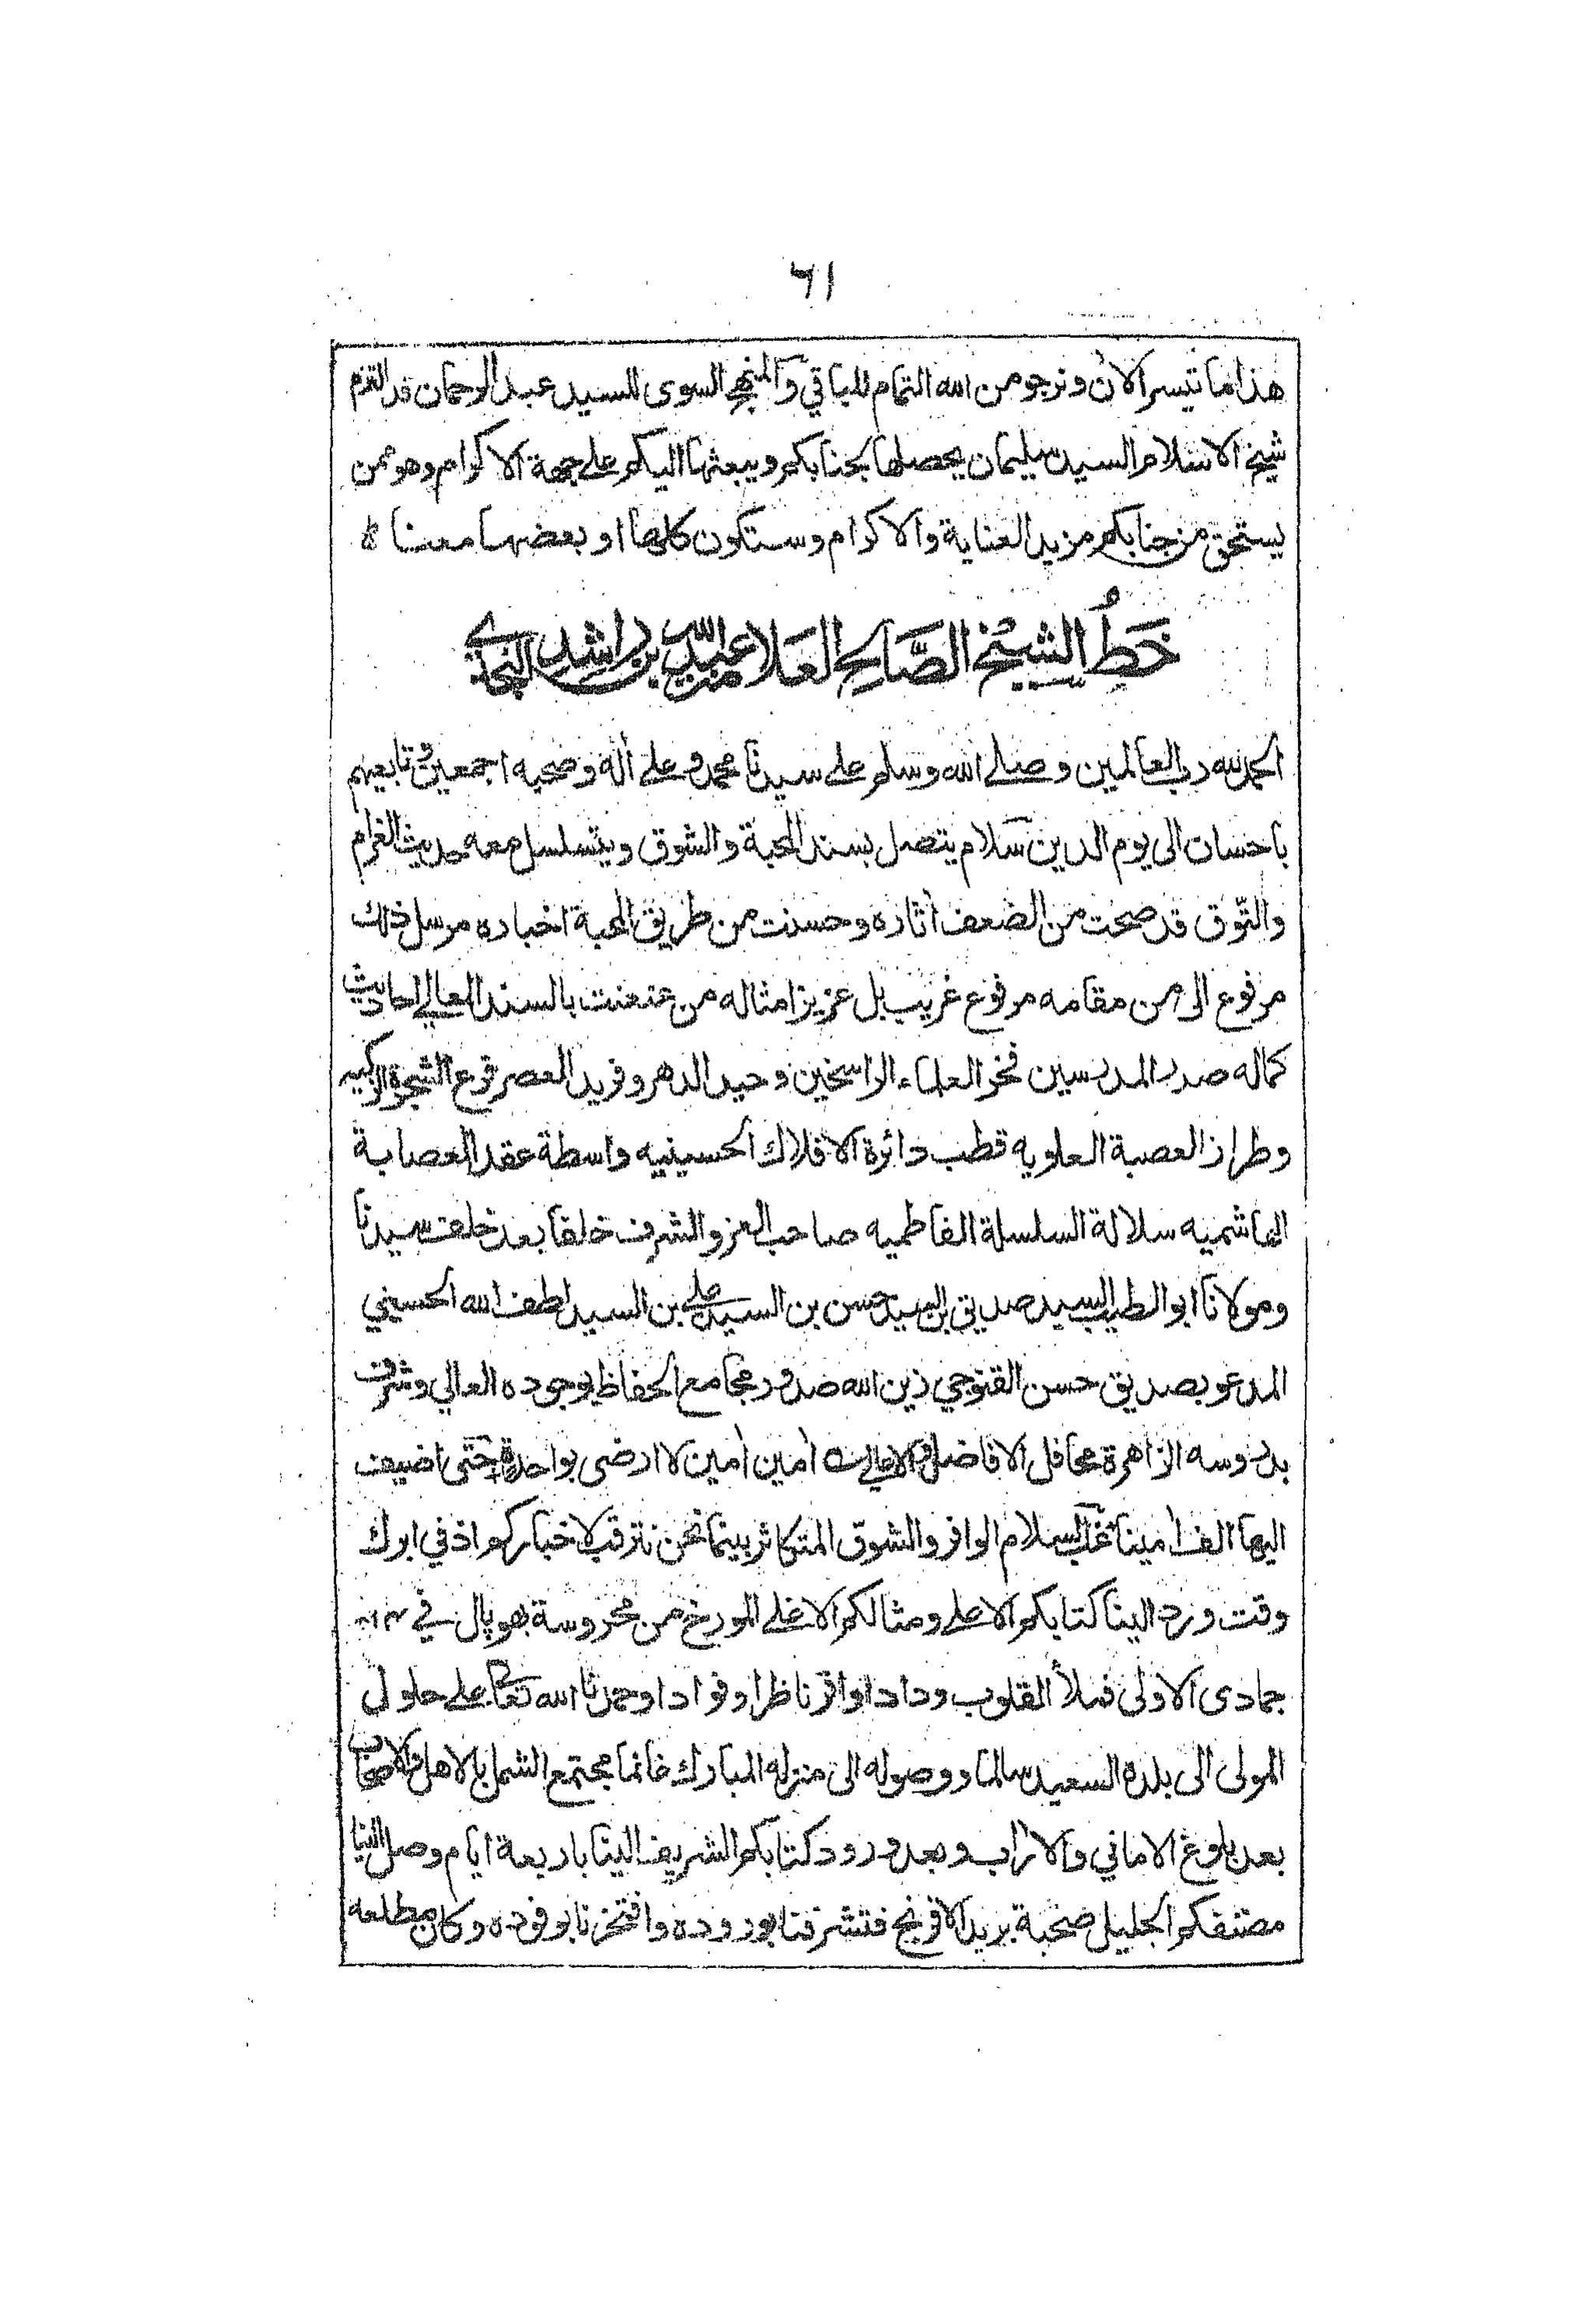 ٦١
هذا ما تيسر الآن ونرجو من الله التمام للباقي والمنهج السوى للسيد عبد الرحمان قد التزم
شيخ الاسلام السيد سليمان يحصلها بجنابكم ويبعثها اليكم على جهة الاكرام وهو ممن
يستحق من جنابكم مزيد العناية والاكرام وستكون كلها او بعضها معنا
خَطُّ الشيخ الصَّالح العَلامة عبد الله بن راشد النجدي
الحمد لله رب العالمين وصلى الله وسلم على سيدنا محمد وعلى أله وصحبه اجمعين وتابعيهم
باحسان الى يوم الدين سلام يتصل بسند المحبة والشوق ويتسلسل معه حديث الغرام
والتّوق قد صحت من الضعف أثاره وحسنت من طريق المحبة اخباره مرسل ذلك
مرفوع الى من مقامه مرفوع غريب بل عزيز امثاله من عنعنت بالسند العالي احاديث
كماله صدر المدرسين فخر العلماء الراسخين وحيد الدهر وفريد العصر فرع الشجرة الزكيه
وطراز العصبة العلويه قطب دائرة الافلاك الحسينيه واسطة عقد العصابة
الهاشميه سلالة السلسلة الفاطميه صاحب العز والشرف خلفا بعد خلف سيدنا
ومولانا ابو الطيب السيد صديق بن السيد حسن بن السيد علي بن السيد لطف الله الحسيني
المدعو بصديق حسن القنوجي زين الله صدور مجامع الحفاظ بوجوده العالي وشرف
بدروسه الزاهرة محافل الافاضل والاعالى أمين أمين لا ارضى بواحدة حتى اضيف
اليها الف أمينا غب السلام الوافر والشوق المتكاثر بينما نحن نترقب لاخباركم اذ في ابرك
وقت ورد الينا كتابكم الاعلى ومثالكم الاغلى المورخ من محروسة بهوپال في
جمادى الاولى فملأ القلوب ودادا واقر ناظرا وفوادا وحمدنا الله تعالى على حلول
المولى الى بلده السعيد سالما ووصوله الى منزله المبارك غانما مجتمع الشمل بالاهل والاصحاب
بعد بلوغ الاماني والأراب وبعد ورود كتابكم الشريف الينا باربعة ايام وصل الينا
مصنفكم الجليل صحبة بريد الافرنج فتشرفنا بوروده وافتخرنا بوفوده وكان مطلعه